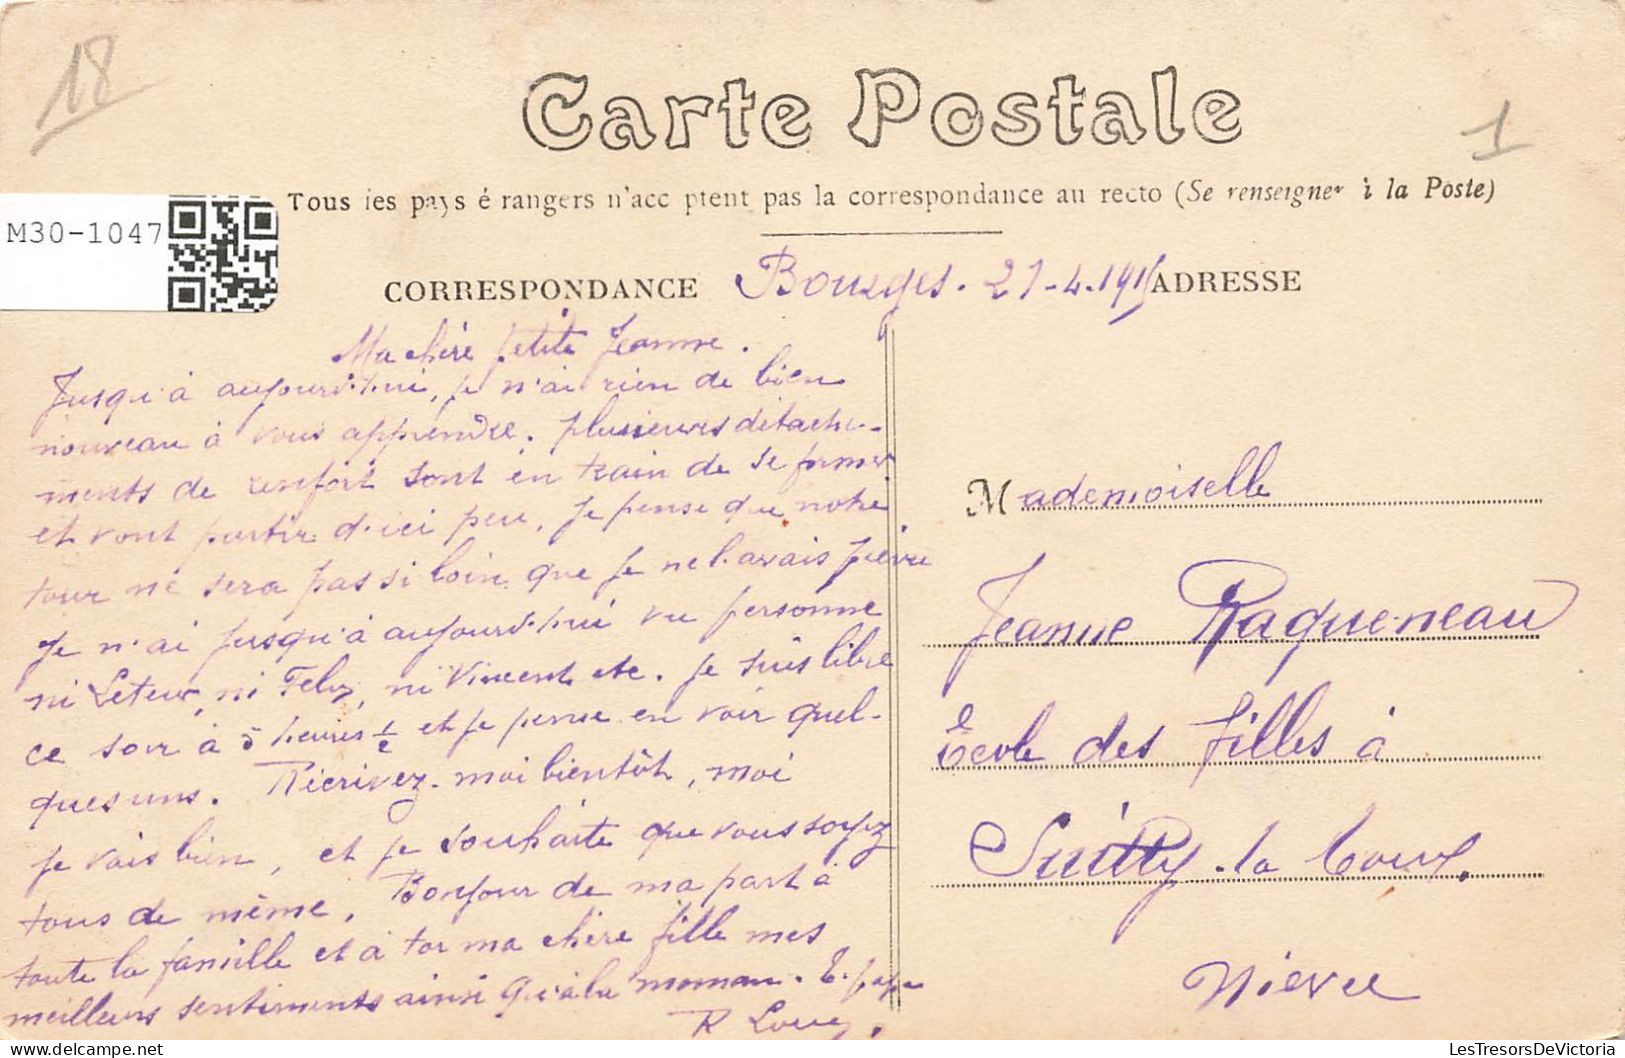 18
Carte Postale
1
Tous les pays é rangers n'acc ptent pas la correspondance au recto (Se renseigner à la Poste)
M30-1047
CORRESPONDANCE
Bourges. 21-4-1915
ADRESSE
Ma chère petite Jeanne.
Jusqu'à aujourd'hui, je n'ai rien de bien
nouveau à vous apprendre. plusieurs détache-
ments de renfort sont en train de se former
et vont partir d'ici peu, je pense que notre
tour ne sera pas si loin que je ne l'avais prévu
Je n'ai jusqu'à aujourd'hui vu personne
ni Leteur, ni Felix, ni Vincent etc. je suis libre
ce soir à 5 heures ½ et je pense en voir quel-
ques uns. Récrivez-moi bientôt, moi
je vais bien, et je souhaite que vous soyez
tous de même. Bonjour de ma part à
toute la famille et à toi ma chère fille mes
meilleurs sentiments ainsi qu'à la moman. T. papa
R
Mademoiselle
Jeanne Raqueneau
École des filles à
Suilly-la Tour.
Nièvre
LesTresorsDeVictoria.com